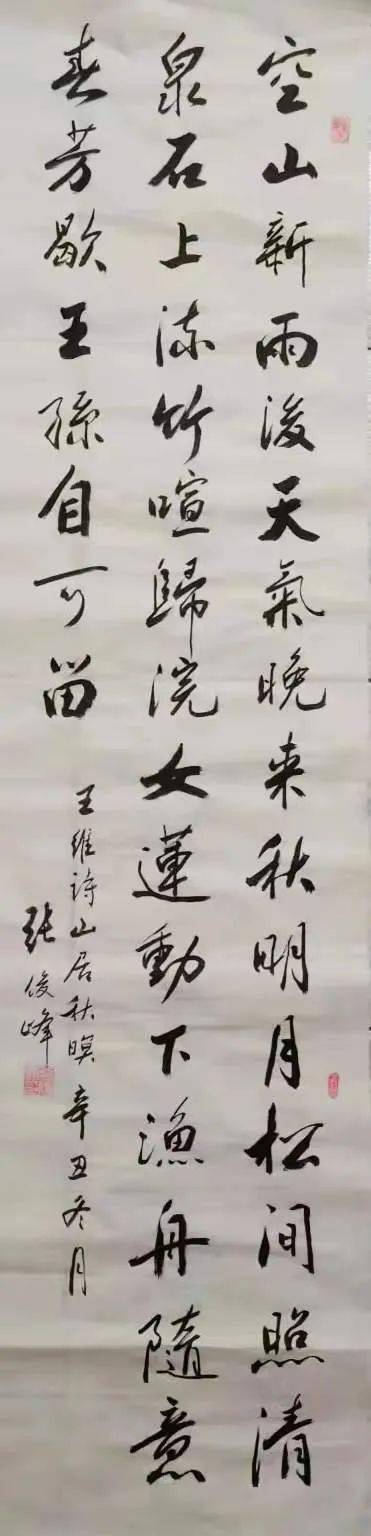 空山新雨後天氣晚来秋明月松间照清
泉石上流竹喧歸浣女蓮動下漁舟隨意
春芳歇王孫自可留
王維詩山居秋暝 辛丑冬月
張俊峰